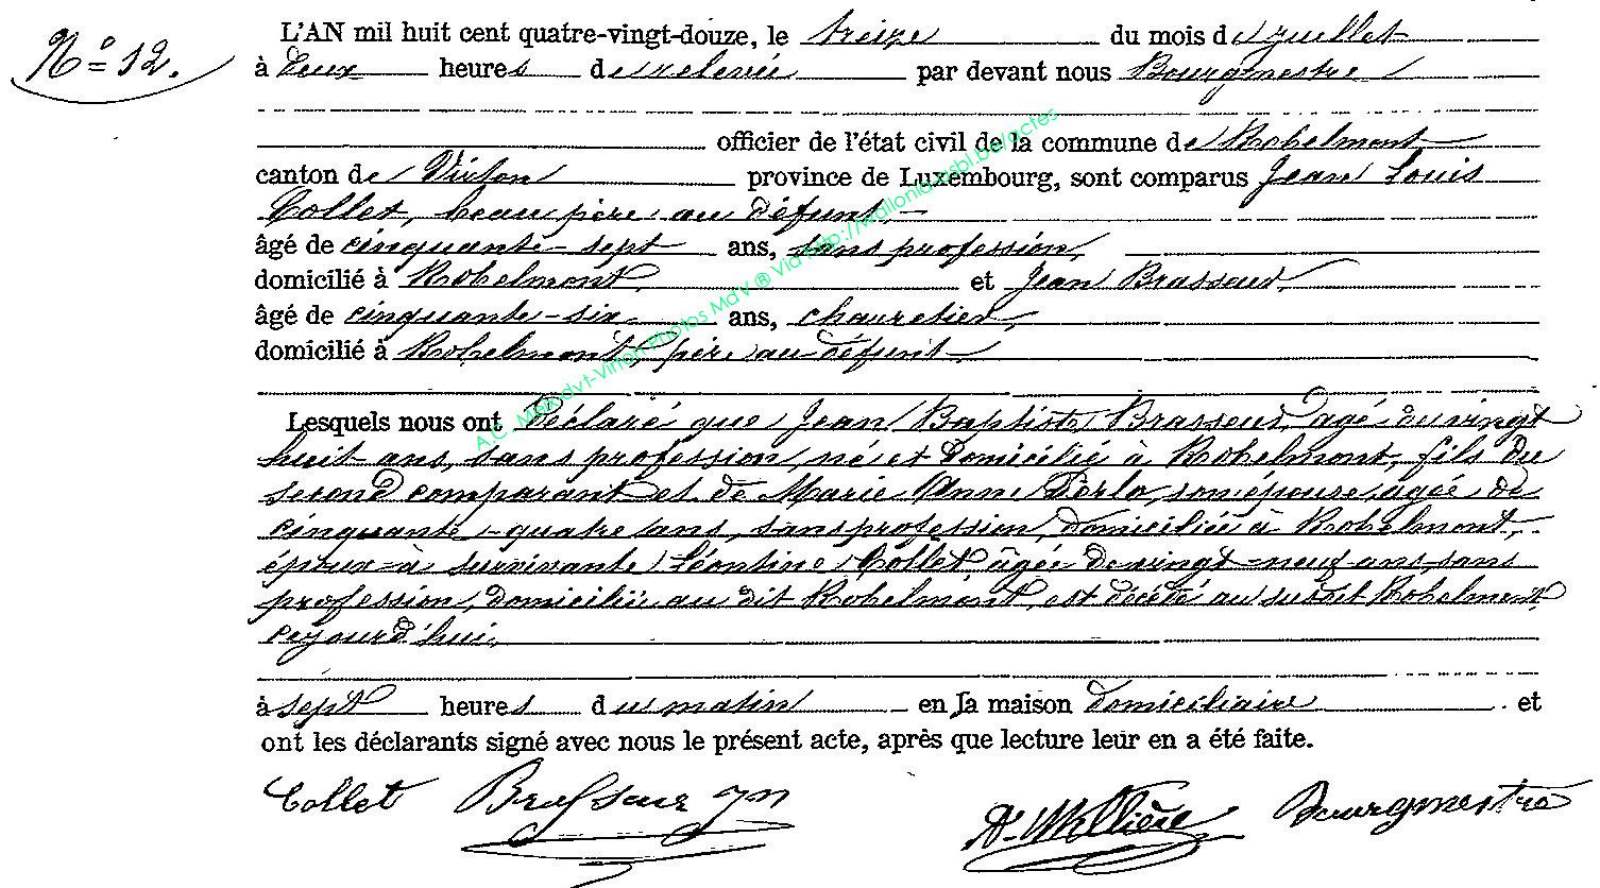 N° = 12.
L'AN mil huit cent quatre-vingt-douze, le treize du mois de juillet
à Deux heures de relevée par devant nous Bourgmestre
officier de l'état civil de la commune de Robelmont
canton de Virton province de Luxembourg, sont comparus Jean Louis
Collet, beau père au défunt,
âgé de cinquante-sept ans, sans profession,
domicilié à Robelmont, et Jean Brasseur,
âgé de cinquante-six ans, charretier,
domicilié à Robelmont, père au défunt
Lesquels nous ont Déclaré que Jean Baptiste Brasseur, agé de vingt
huit ans, sans profession, né et domicilié à Robelmont, fils du
second comparant et de Marie Anne Perlo, son épouse, agée de
cinquante-quatre ans, sans profession, domiciliée à Robelmont,
époux à survivante Léontine Collet, âgée de vingt-neuf ans, sans
profession, domiciliée au dit Robelmont, est décédé au susdit Robelmont,
cejourd'hui,
à sept heures du matin en la maison domiciliaire et
ont les déclarants signé avec nous le présent acte, après que lecture leur en a été faite.
Collet Brasseur Jn Bourgmestre
Via http://wallonia-asbl.be/actes